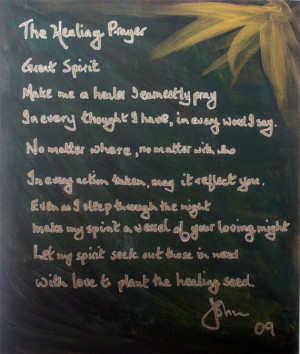 The Healing Prayer
Great Spirit
Make me a healer I earnestly pray
In every thought I have, in every word I say.
No matter where, no matter with who
In every action taken, may it reflect you.
Even as I sleep through the night
make my spirit a vessel of your loving might
Let my spirit seek out those in need
with love to plant the healing seed.
John
09